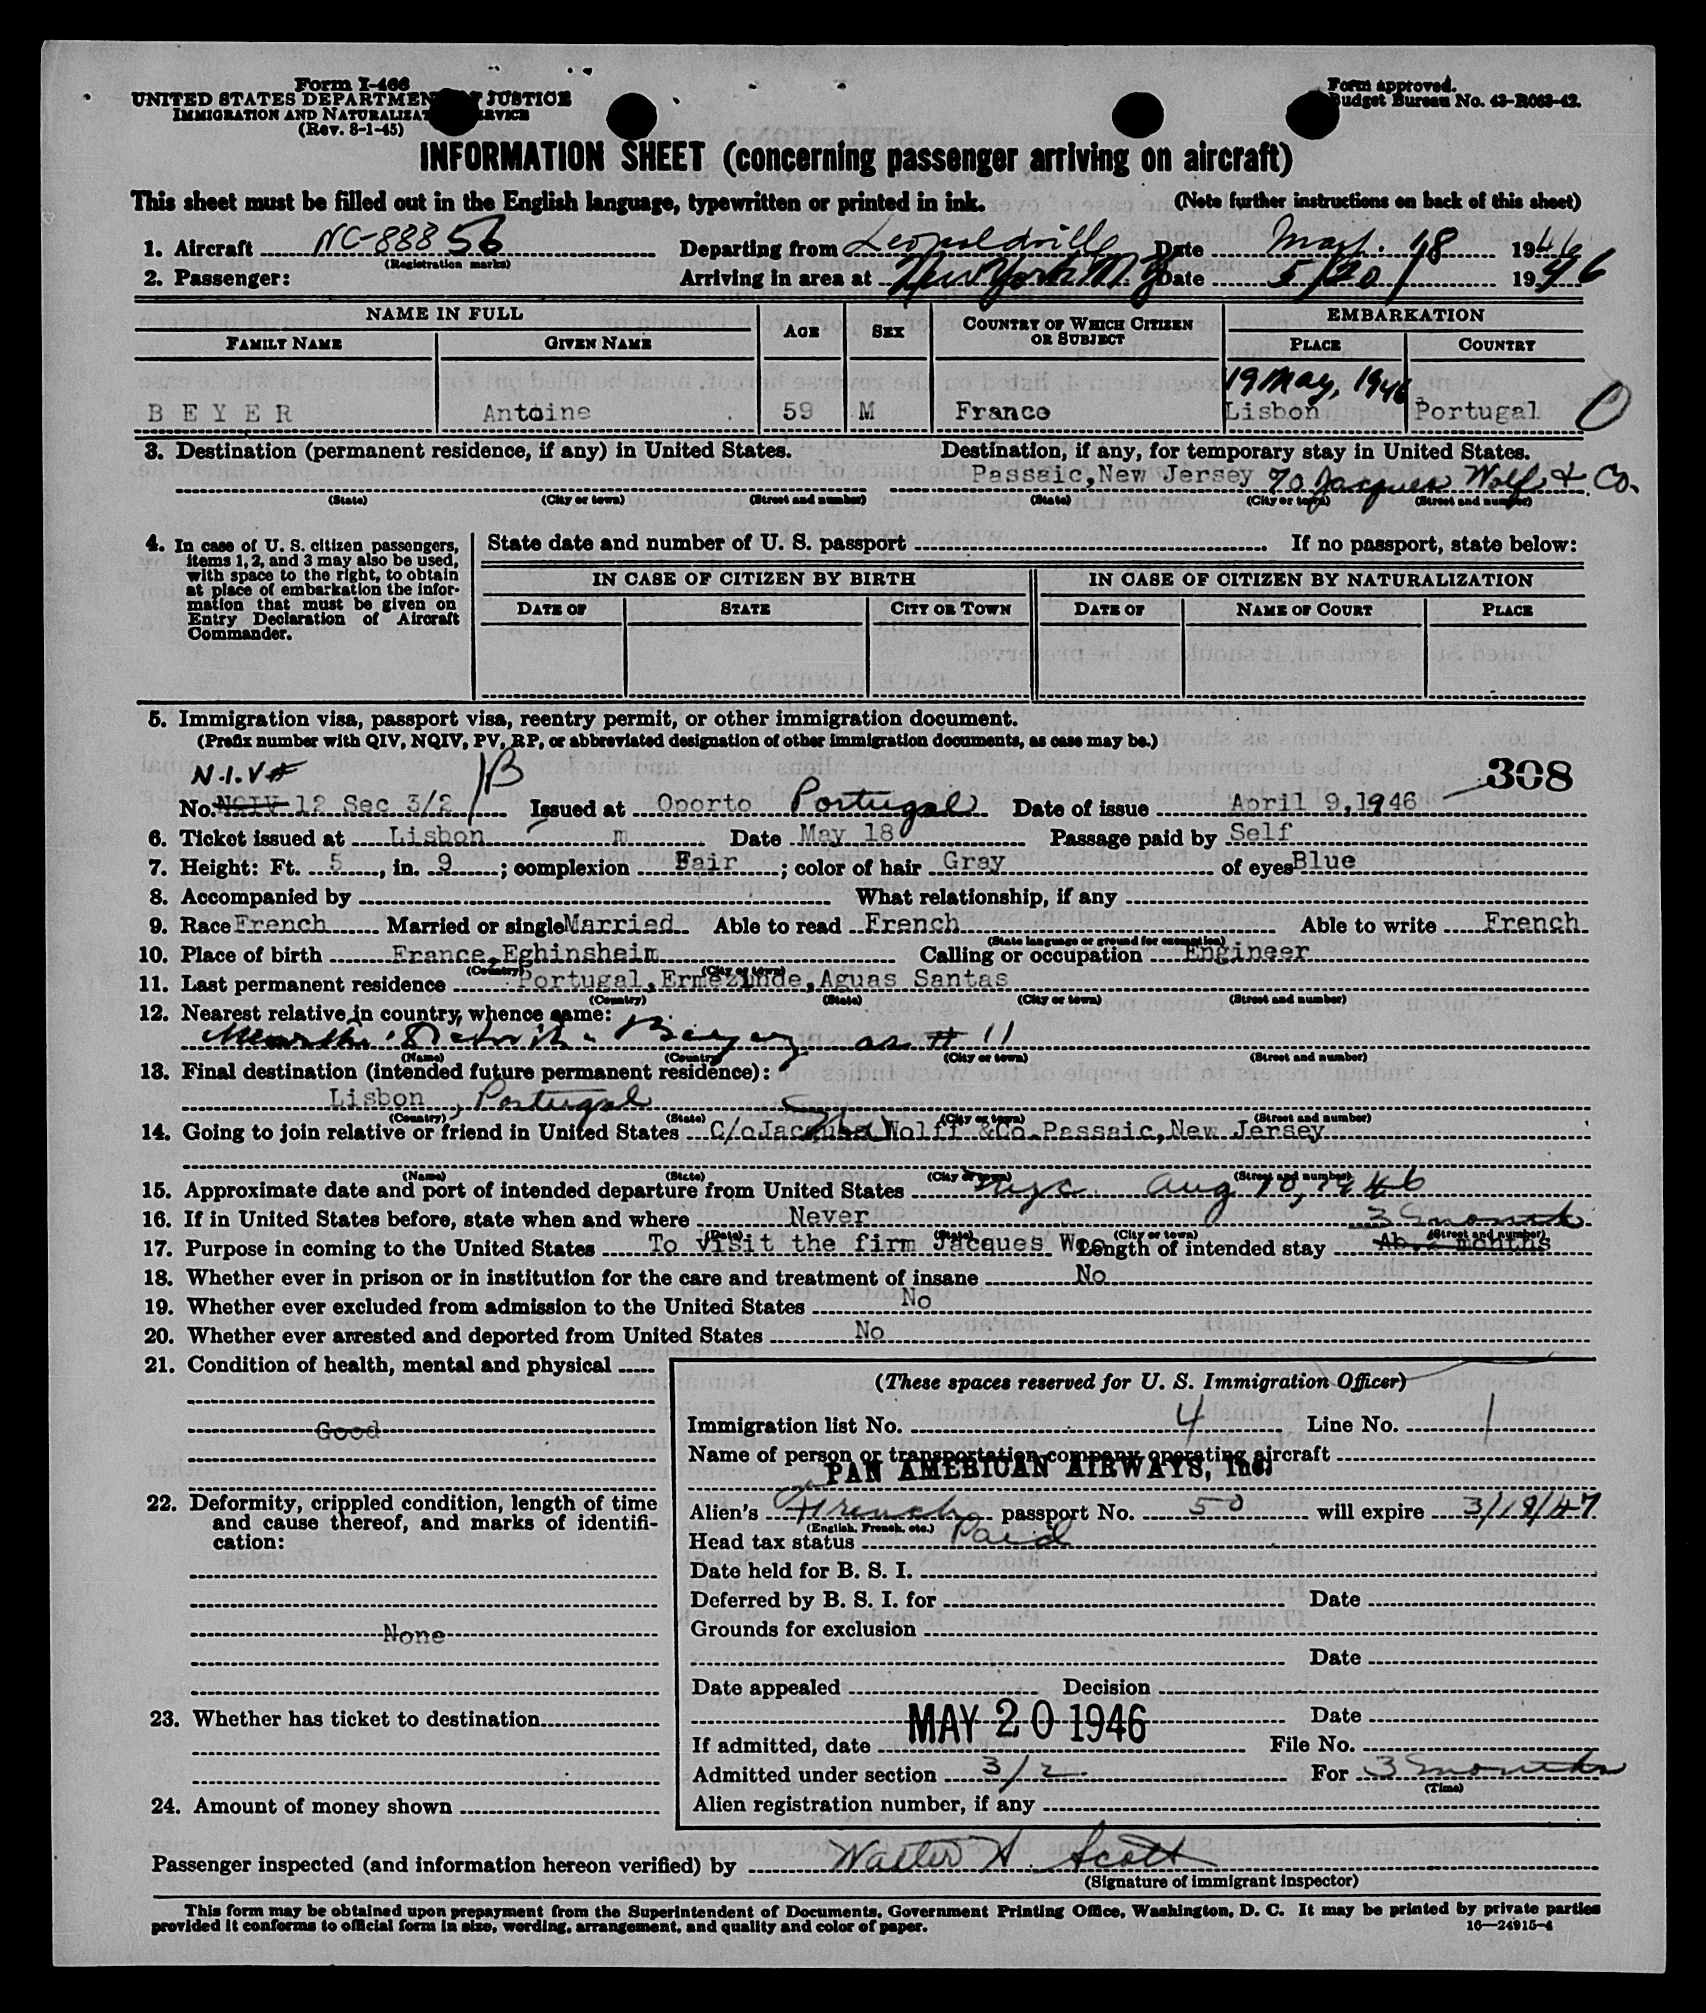 Form I-466
UNITED STATES DEPARTMENT OF JUSTICE
IMMIGRATION AND NATURALIZATION SERVICE
(Rev. 8-1-45)
Form approved.
Budget Bureau No. 43-R063-42.
INFORMATION SHEET (concerning passenger arriving on aircraft)
This sheet must be filled out in the English language, typewritten or printed in ink. (Note further instructions on back of this sheet)
1. Aircraft NC-88856 Departing from Leopoldville Date May 18 1946
(Registration marks)
2. Passenger: Arriving in area at New York N.Y. Date 5/20/ 1946
NAME IN FULL AGE SEX COUNTRY OF WHICH CITIZEN OR SUBJECT EMBARKATION
FAMILY NAME GIVEN NAME PLACE COUNTRY
19 May, 1946
BEYER Antoine 59 M France Lisbon Portugal
3. Destination (permanent residence, if any) in United States. Destination, if any, for temporary stay in United States.
Passaic, New Jersey % Jacques Wolf & Co.
(State) (City or town) (Street and number) (State) (City or town) (Street and number)
4. In case of U. S. citizen passengers, items 1, 2, and 3 may also be used, with space to the right, to obtain at place of embarkation the information that must be given on Entry Declaration of Aircraft Commander.
State date and number of U. S. passport If no passport, state below:
IN CASE OF CITIZEN BY BIRTH IN CASE OF CITIZEN BY NATURALIZATION
DATE OF STATE CITY OR TOWN DATE OF NAME OF COURT PLACE
5. Immigration visa, passport visa, reentry permit, or other immigration document.
(Prefix number with QIV, NQIV, PV, RP, or abbreviated designation of other immigration documents, as case may be.)
N.I.V# /B 308
No. NQIV 12 Sec 3/2 Issued at Oporto Portugal Date of issue April 9, 1946
6. Ticket issued at Lisbon m Date May 18 Passage paid by Self
7. Height: Ft. 5, in. 9; complexion Fair; color of hair Gray of eyes Blue
8. Accompanied by What relationship, if any
9. Race French Married or single Married Able to read French Able to write French
(State language or ground for exemption)
10. Place of birth France, Eghinsheim Calling or occupation Engineer
(Country) (City or town)
11. Last permanent residence Portugal, Ermezinde, Aguas Santas
(Country) (State) (City or town) (Street and number)
12. Nearest relative in country, whence came:
Beyer as # 11
(Name) (Country) (City or town) (Street and number)
13. Final destination (intended future permanent residence):
Lisbon, Portugal
(Country) (State) (City or town) (Street and number)
14. Going to join relative or friend in United States C/o Jacques Wolff & Co. Passaic, New Jersey
(Name) (State) (City or town) (Street and number)
15. Approximate date and port of intended departure from United States nyc. Aug 10, 1946
16. If in United States before, state when and where Never 3 months
(Date) (State) (City or town) (Street and number)
17. Purpose in coming to the United States To visit the firm Jacques Wo Length of intended stay months
18. Whether ever in prison or in institution for the care and treatment of insane No
19. Whether ever excluded from admission to the United States No
20. Whether ever arrested and deported from United States No
21. Condition of health, mental and physical
Good
22. Deformity, crippled condition, length of time and cause thereof, and marks of identification:
None
23. Whether has ticket to destination
24. Amount of money shown
(These spaces reserved for U. S. Immigration Officer)
Immigration list No. 4 Line No. 1
Name of person or transportation company operating aircraft
PAN AMERICAN AIRWAYS, Inc.
Alien's French passport No. 50 will expire 3/19/47
(English, French, etc.)
Head tax status Paid
Date held for B. S. I.
Deferred by B. S. I. for Date
Grounds for exclusion
Date
Date appealed Decision
Date
If admitted, date MAY 20 1946 File No.
Admitted under section 3/2 For 3 months
(Time)
Alien registration number, if any
Passenger inspected (and information hereon verified) by Walter A. Scott
(Signature of immigrant inspector)
This form may be obtained upon prepayment from the Superintendent of Documents, Government Printing Office, Washington, D. C. It may be printed by private parties
provided it conforms to official form in size, wording, arrangement, and quality and color of paper. 16—24915-4